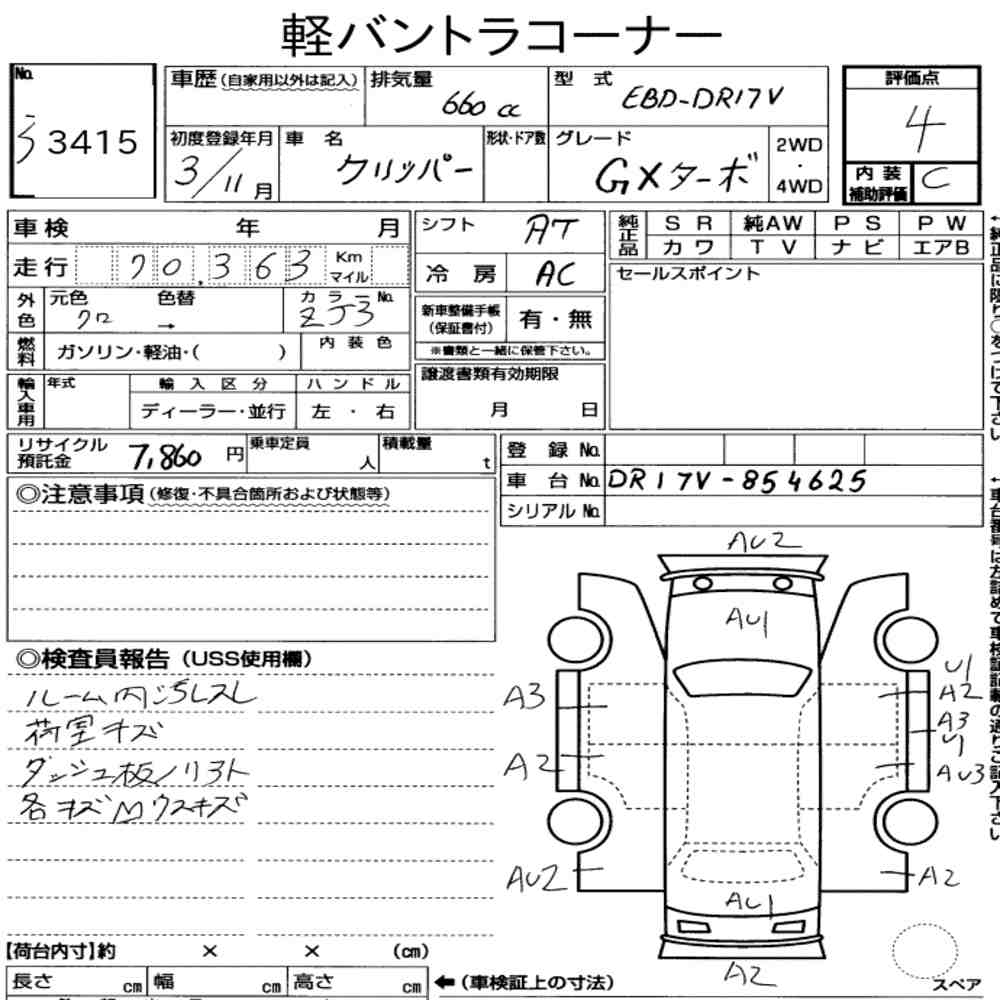 軽バントラコーナー
No. 3415
車歴(自家用以外は記入) 排気量 660 cc 型式 EBD-DR17V 評価点 4
初度登録年月 3/11月 車名 クリッパー 形状・ドア数 グレード GXターボ 2WD・4WD 内装補助評価 C
車検 年 月 シフト AT 純正品 SR 純AW PS PW
カワ TV ナビ エアB
走行 70,363 Km マイル 冷房 AC セールスポイント
外色 元色 クロ 色替 → カラーNo. ZJ3 新車整備手帳(保証書付) 有・無
燃料 ガソリン・軽油・( ) 内装色 ※書類と一緒に保管下さい。
輸入車用 年式 輸入区分 ハンドル 譲渡書類有効期限
ディーラー・並行 左・右 月 日
リサイクル預託金 7,860円 乗車定員 人 積載量 t 登録No.
車台No. DR17V-854625
シリアルNo.
◎注意事項(修復・不具合箇所および状態等)
◎検査員報告(USS使用欄)
ルーム内汚レスレ
荷室キズ
ダッシュ板ノリヨト
各キズMウスキズ
AU2
AU1
A3
U1
A2
A3
U1
A2
AU3
AU2
A2
AU1
A2
スペア
【荷台内寸】約 × × (cm)
長さ cm 幅 cm 高さ cm ←(車検証上の寸法)
←純正品に限り○をつけて下さい
←車台番号は左詰めで車検証記載の通りご記入下さい